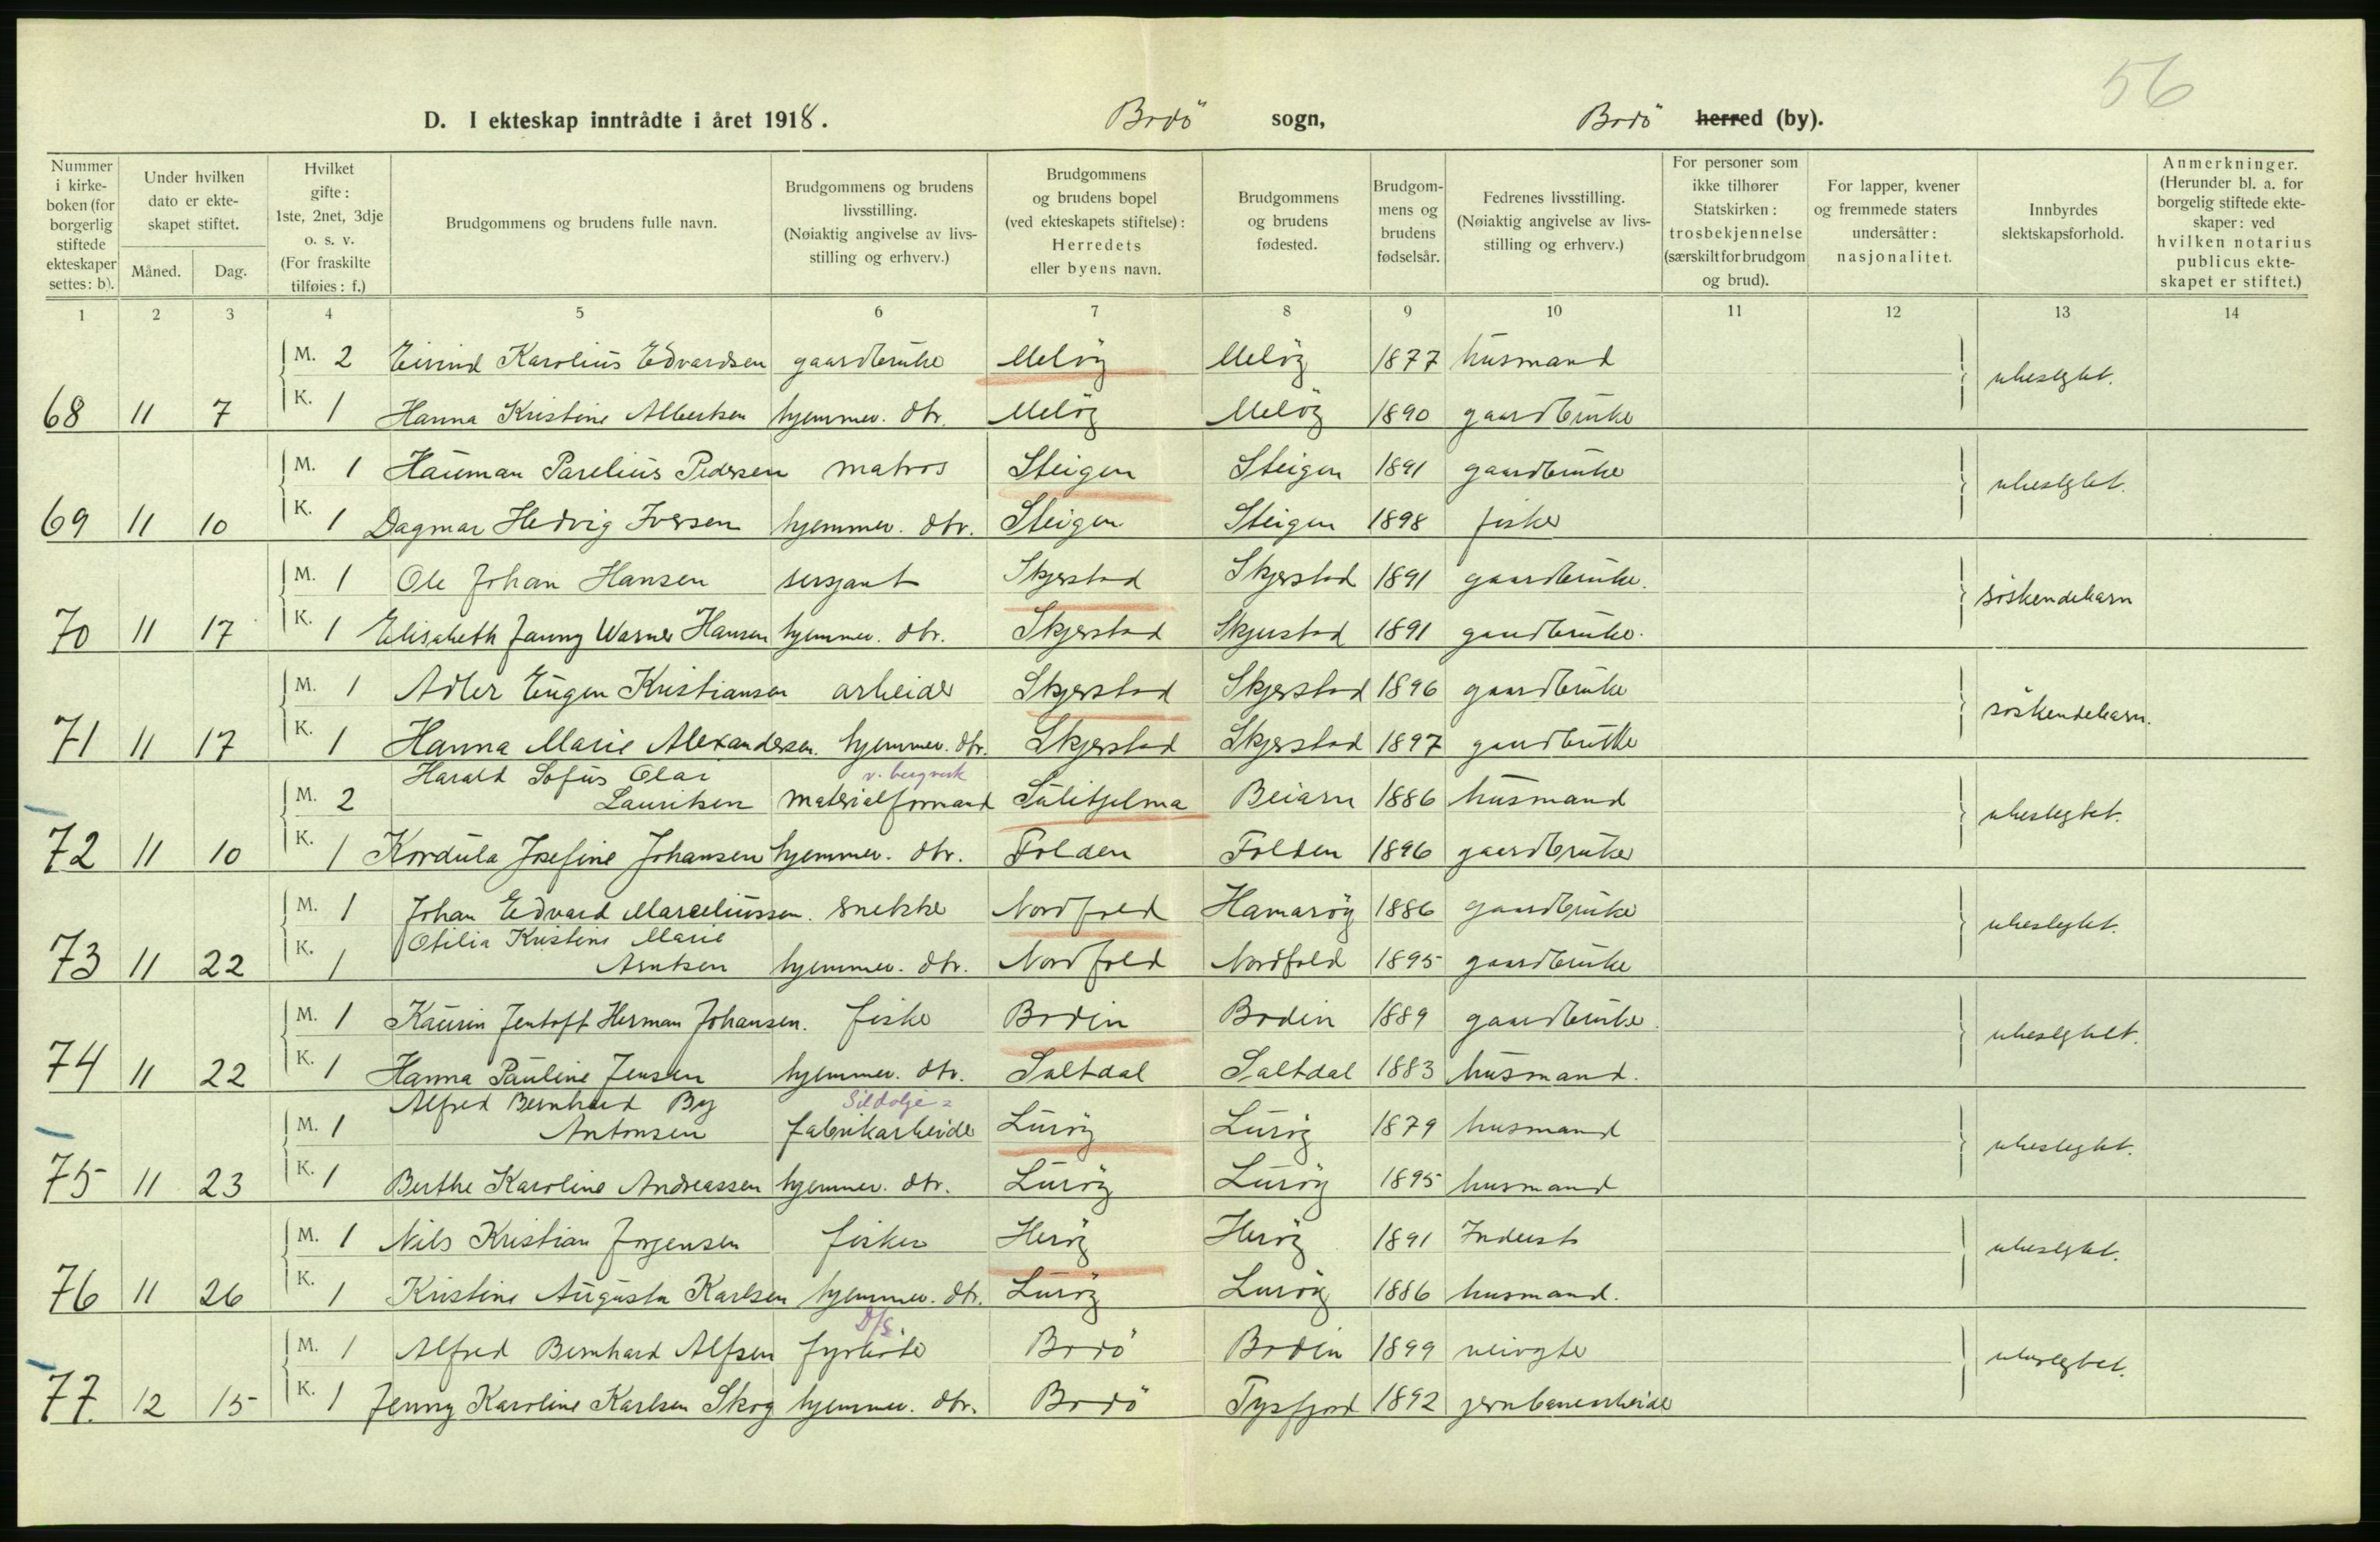 56
D. I ekteskap inntrådte i året 1918. Bodö sogn, Bodö herred (by).
Nummer i kirkeboken (for borgerlig stiftede ekteskaper settes: b).
Under hvilken dato er ekteskapet stiftet.
Måned. Dag.
Hvilket gifte: 1ste, 2net, 3dje o. s. v. (For fraskilte tilføies: f.)
Brudgommens og brudens fulle navn.
Brudgommens og brudens livsstilling. (Nøiaktig angivelse av livsstilling og erhverv.)
Brudgommens og brudens bopel (ved ekteskapets stiftelse): Herredets eller byens navn.
Brudgommens og brudens fødested.
Brudgommens og brudens fødselsår.
Fedrenes livsstilling. (Nøiaktig angivelse av livsstilling og erhverv.)
For personer som ikke tilhører Statskirken: trosbekjennelse (særskilt for brudgom og brud).
For lapper, kvener og fremmede staters undersåtter: nasjonalitet.
Innbyrdes slektskapsforhold.
Anmerkninger. (Herunder bl. a. for borgelig stiftede ekteskaper: ved hvilken notarius publicus ekteskapet er stiftet.)
1 2 3 4 5 6 7 8 9 10 11 12 13 14
M. 2 Eivind Karolius Edvardsen gaardbruke Melöy Melöy 1877 husmand ubeslegtet.
68 11 7 K. 1 Hanna Kristine Albertsen hjemmev. dtr. Melöy Melöy 1890 gaardbruke
M. 1 Hauman Parelius Pedersen matros Steigen Steigen 1891 gaardbruke ubeslegtet.
69 11 10 K. 1 Dagmar Hedvig Iversen hjemmev. dtr. Steigen Steigen 1898 fisker
M. 1 Ole Johan Hansen sersjant Skjerstad Skjerstad 1891 gaardbruke. söskendebarn
70 11 17 K. 1 Elisabeth Fanny Warner Hansen hjemmev. dtr. Skjerstad Skjerstad 1891 gaardbruke.
M. 1 Adler Eugen Kristiansen arbeider Skjerstad Skjerstad 1896 gaardbruke söskendebarn.
71 11 17 K. 1 Hanna Marie Alexandersen. hjemmev. dtr. Skjerstad Skjerstad 1897 gaardbruke
Harald Sofus Olai v. bergverk
M. 2 Lauritsen materialformand Sulitjelma Beiarn 1886 husmand ubeslegtet.
72 11 10 K. 1 Kordula Josefine Johansen hjemmev. dtr. Folden Folden 1896 gaardbruker
M. 1 Johan Edvard Marseliussen. snekke Nordfold Hamaröy 1886 gaardbruke ubeslegtet.
Otilia Kristine Marie
73 11 22 K. 1 Arntsen hjemmev. dtr. Nordfold Nordfold 1895 gaardbruke
M. 1 Kaurin Jentoft Herman Johansen. fisker Bodin Bodin 1889 gaardbruke. ubeslegtet.
74 11 22 K. 1 Hanna Pauline Jensen hjemmev. dtr. Saltdal Saltdal 1883 husmand.
Alfred Bernhard By Sildolje=
M. 1 Antonsen fabrikarbeide Luröy Luröy 1879 husmand ubeslegtet.
75 11 23 K. 1 Berthe Karoline Andreassen hjemmev. dtr. Luröy Luröy 1895 husmand
M. 1 Nils Kristian Jorgensen fisker Heröy Heröy 1891 Inderst ubeslegtet.
76 11 26 K. 1 Kristine Augusta Karlsen hjemmev. dtr. Luröy Luröy 1886 husmand.
D/S
M. 1 Alfred Bernhard Alfsen fyrböte Bodö Bodin 1899 veivogte ubeslegtet.
77. 12 15 K. 1 Jenny Karoline Karlsen Skog hjemmev. dtr. Bodö Tysfjord 1892 jernbanearbeide